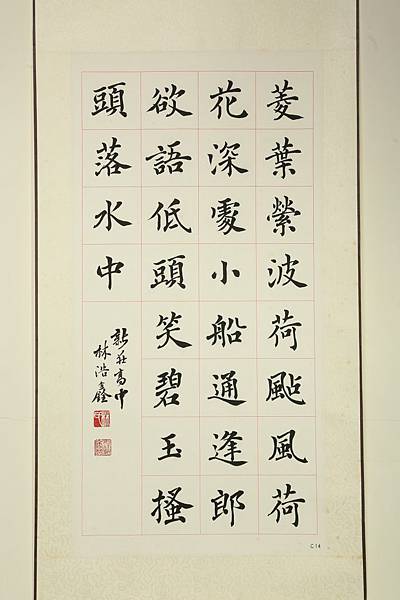 菱葉縈波荷颭風荷
花深處小船通逢郎
欲語低頭笑碧玉搔
頭落水中
新莊高中
林浩鑫
C14